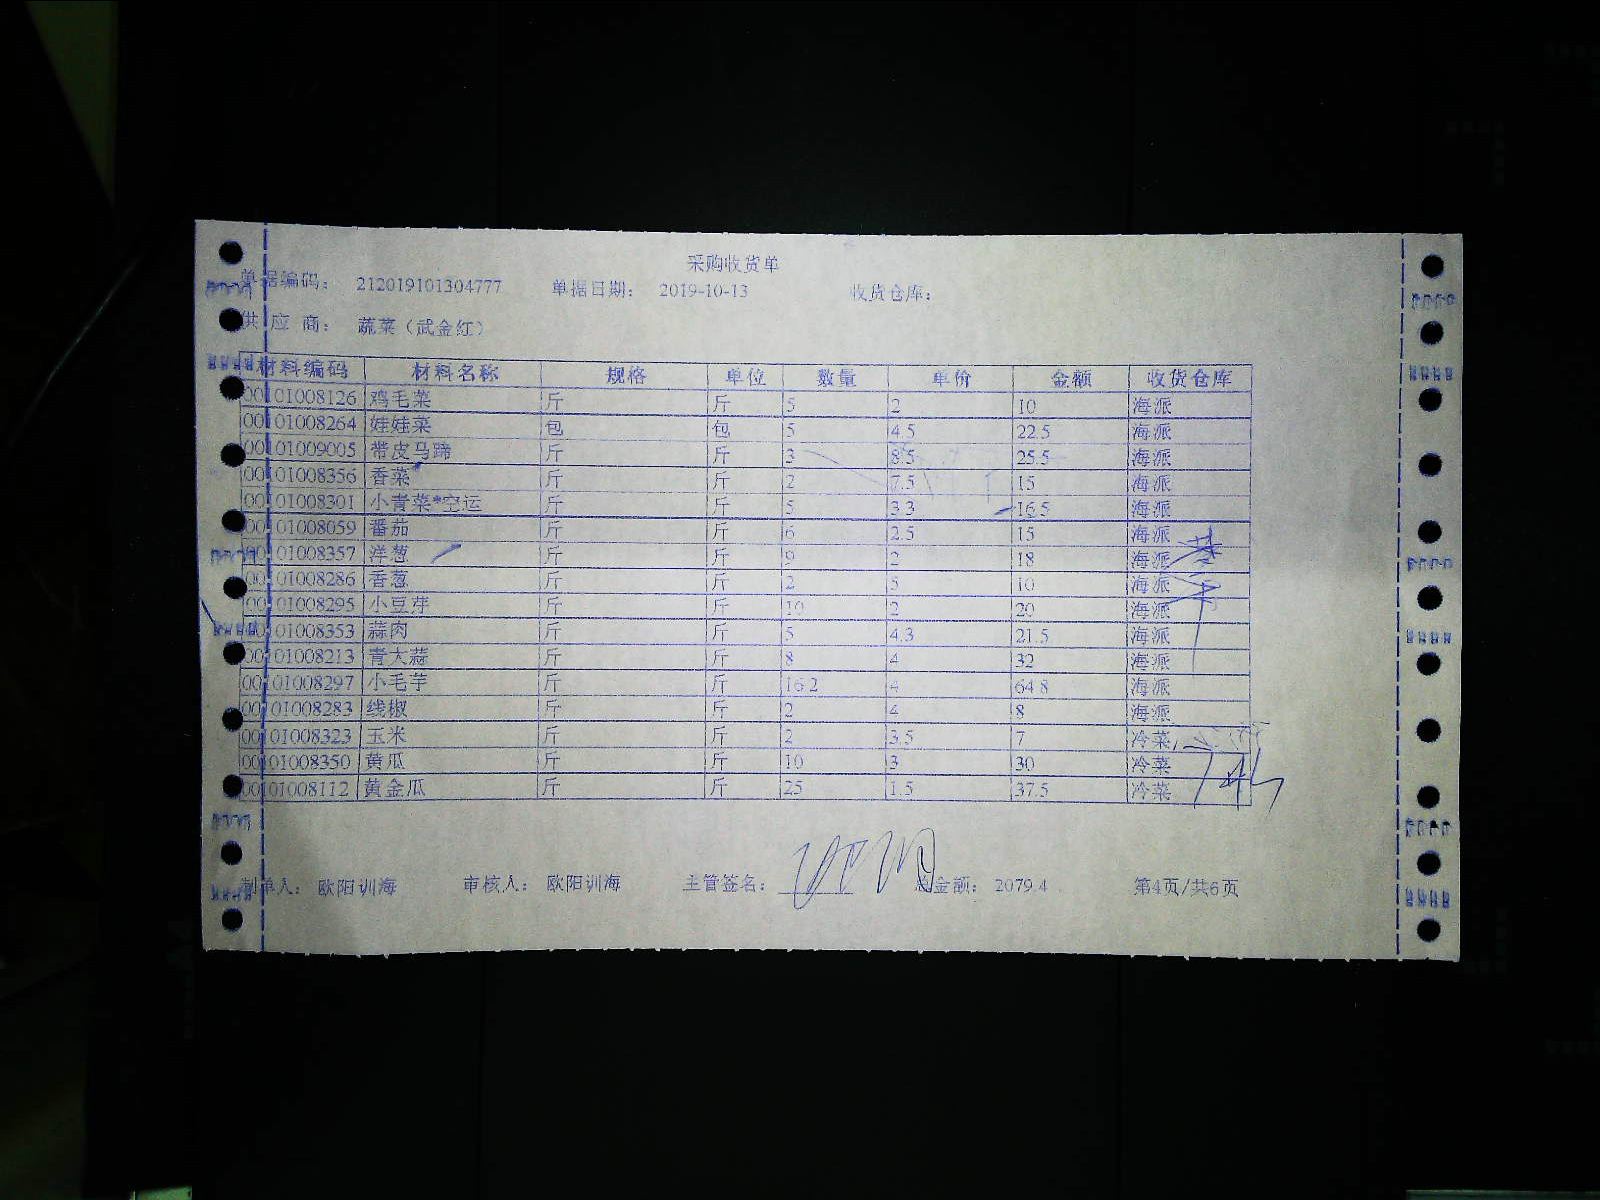 采购收货单
单据编码： 212019101304777 单据日期： 2019-10-13 收货仓库：
供 应 商： 蔬菜（武金红）
材料编码 材料名称 规格 单位 数量 单价 金额 收货仓库
00101008126 鸡毛菜 斤 斤 5 2 10 海派
00101008264 娃娃菜 包 包 5 4.5 22.5 海派
00101009005 带皮马蹄 斤 斤 3 8.5 25.5 海派
00101008356 香菜 斤 斤 2 7.5 15 海派
00101008301 小青菜*空运 斤 斤 5 3.3 16.5 海派
00101008059 番茄 斤 斤 6 2.5 15 海派
00101008357 洋葱 斤 斤 9 2 18 海派
00101008286 香葱 斤 斤 2 5 10 海派
00101008295 小豆芽 斤 斤 10 2 20 海派
00101008353 蒜肉 斤 斤 5 4.3 21.5 海派
00101008213 青大蒜 斤 斤 8 4 32 海派
00101008297 小毛芋 斤 斤 16.2 4 64.8 海派
00101008283 线椒 斤 斤 2 4 8 海派
00101008323 玉米 斤 斤 2 3.5 7 冷菜
00101008350 黄瓜 斤 斤 10 3 30 冷菜
00101008112 黄金瓜 斤 斤 25 1.5 37.5 冷菜
制单人： 欧阳训海 审核人： 欧阳训海 主管签名： 总金额： 2079.4 第4页/共6页